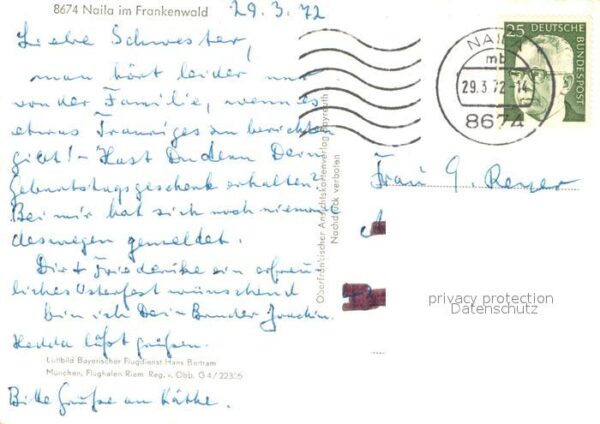 8674 Naila im Frankenwald
29.3.72
Liebe Schwester,
man hört leider nur
von der Familie, wenn es
etwas Trauriges zu berichten
gibt! - Hast Du denn Dein
Geburtstagsgeschenk erhalten?
Bei mir hat sich noch niemand
deswegen gemeldet.
Dir + Friederike ein erfreu-
liches Osterfest wünschend
bin ich Dein Bruder Joachim.
Hedda läßt grüßen.
Luftbild Bayerischer Flugdienst Hans Bertram
München, Flughafen Riem Reg. v. Obb. G 4/
Bitte Grüße an Käthe.
Oberfränkischer Ansichtskartenverlag Bayreuth
Nachdruck verboten
NAILA
mb
29.3.72-14
8674
25
DEUTSCHE
BUNDESPOST
Frau G.
privacy protection
Datenschutz